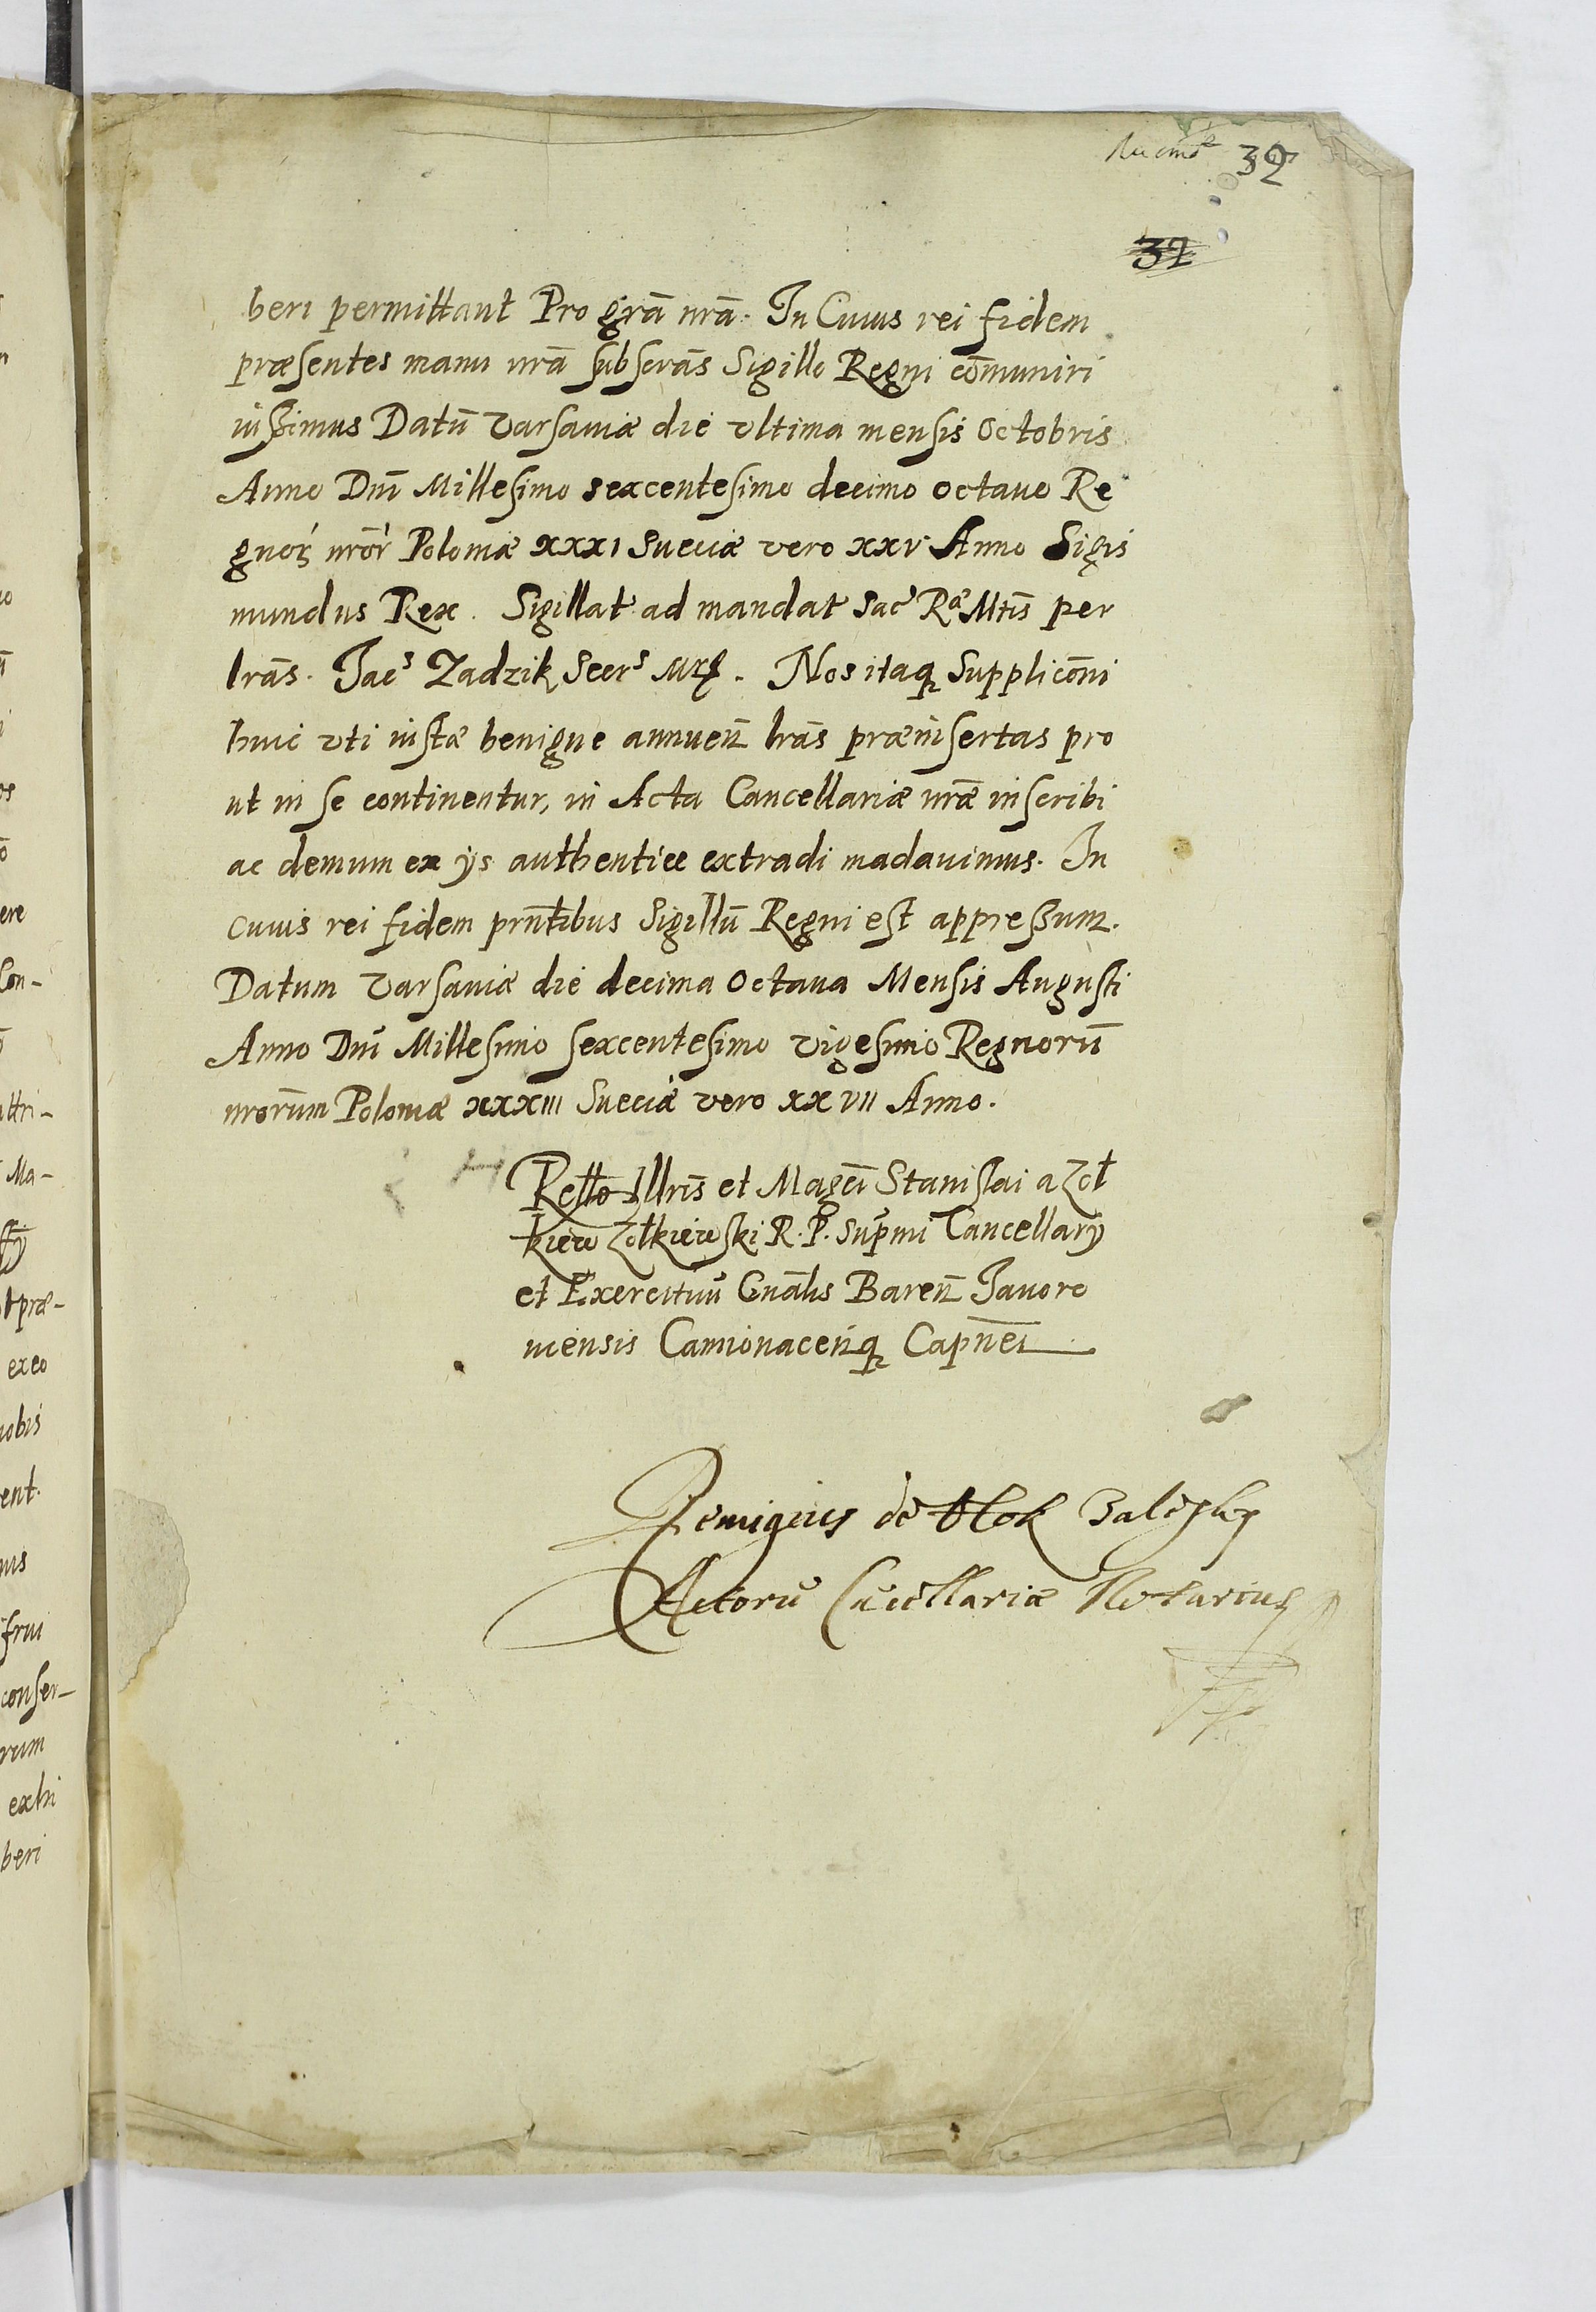 32
32
beri permittant Pro grã nrã. In Cuius rei fidem
præsentes manu nrã subscrãs Sigillo Regni cõmuniri
iussimus Datũ Varsaviæ die vltima mensis Octobris
Anno Dnĩ Millesimo sexcentesimo decimo octavo Re
gnor nrõr Poloniæ XXXI Sueciæ vero XXV Anno Sigis
mundus Rex. Sigillat ad mandat Sac Ræ Mtĩs per
lrãs. Jacs Zadzik Secrs Mrg. Nos itaq Supplicõni
huic vti iustæ benigne annuen lrãs præinsertas pro
ut in se continentur, in Acta Cancellariæ nræ inscribi
ac demum ex ijs authentice extradi madavimus. In
cuius rei fidem prñtibus Sigillũ Regni est appressum.
Datum Varsaviæ die decima Octava Mensis Augusti
Anno Dnĩ Millesimo sexcentesimo vigesimo Regnorũ
nrorũm Poloniæ XXXIII Sueciæ vero XXVII Anno.
Rello Illris et Magcĩ Stanislai a Zoł
kiew Zołkiewski R. P. Supmi Cancellarij
et Exercituũ Gnãlis Baren Javoro
viensis Camionacenq Capñei
Remigius de Otok Zalesky
Actorũ Cãcellariæ Notarius
ere
Con-
ttri-
Ma-
præ-
exeo
nobis
ent.
frui
conser-
rum
exhi
beri